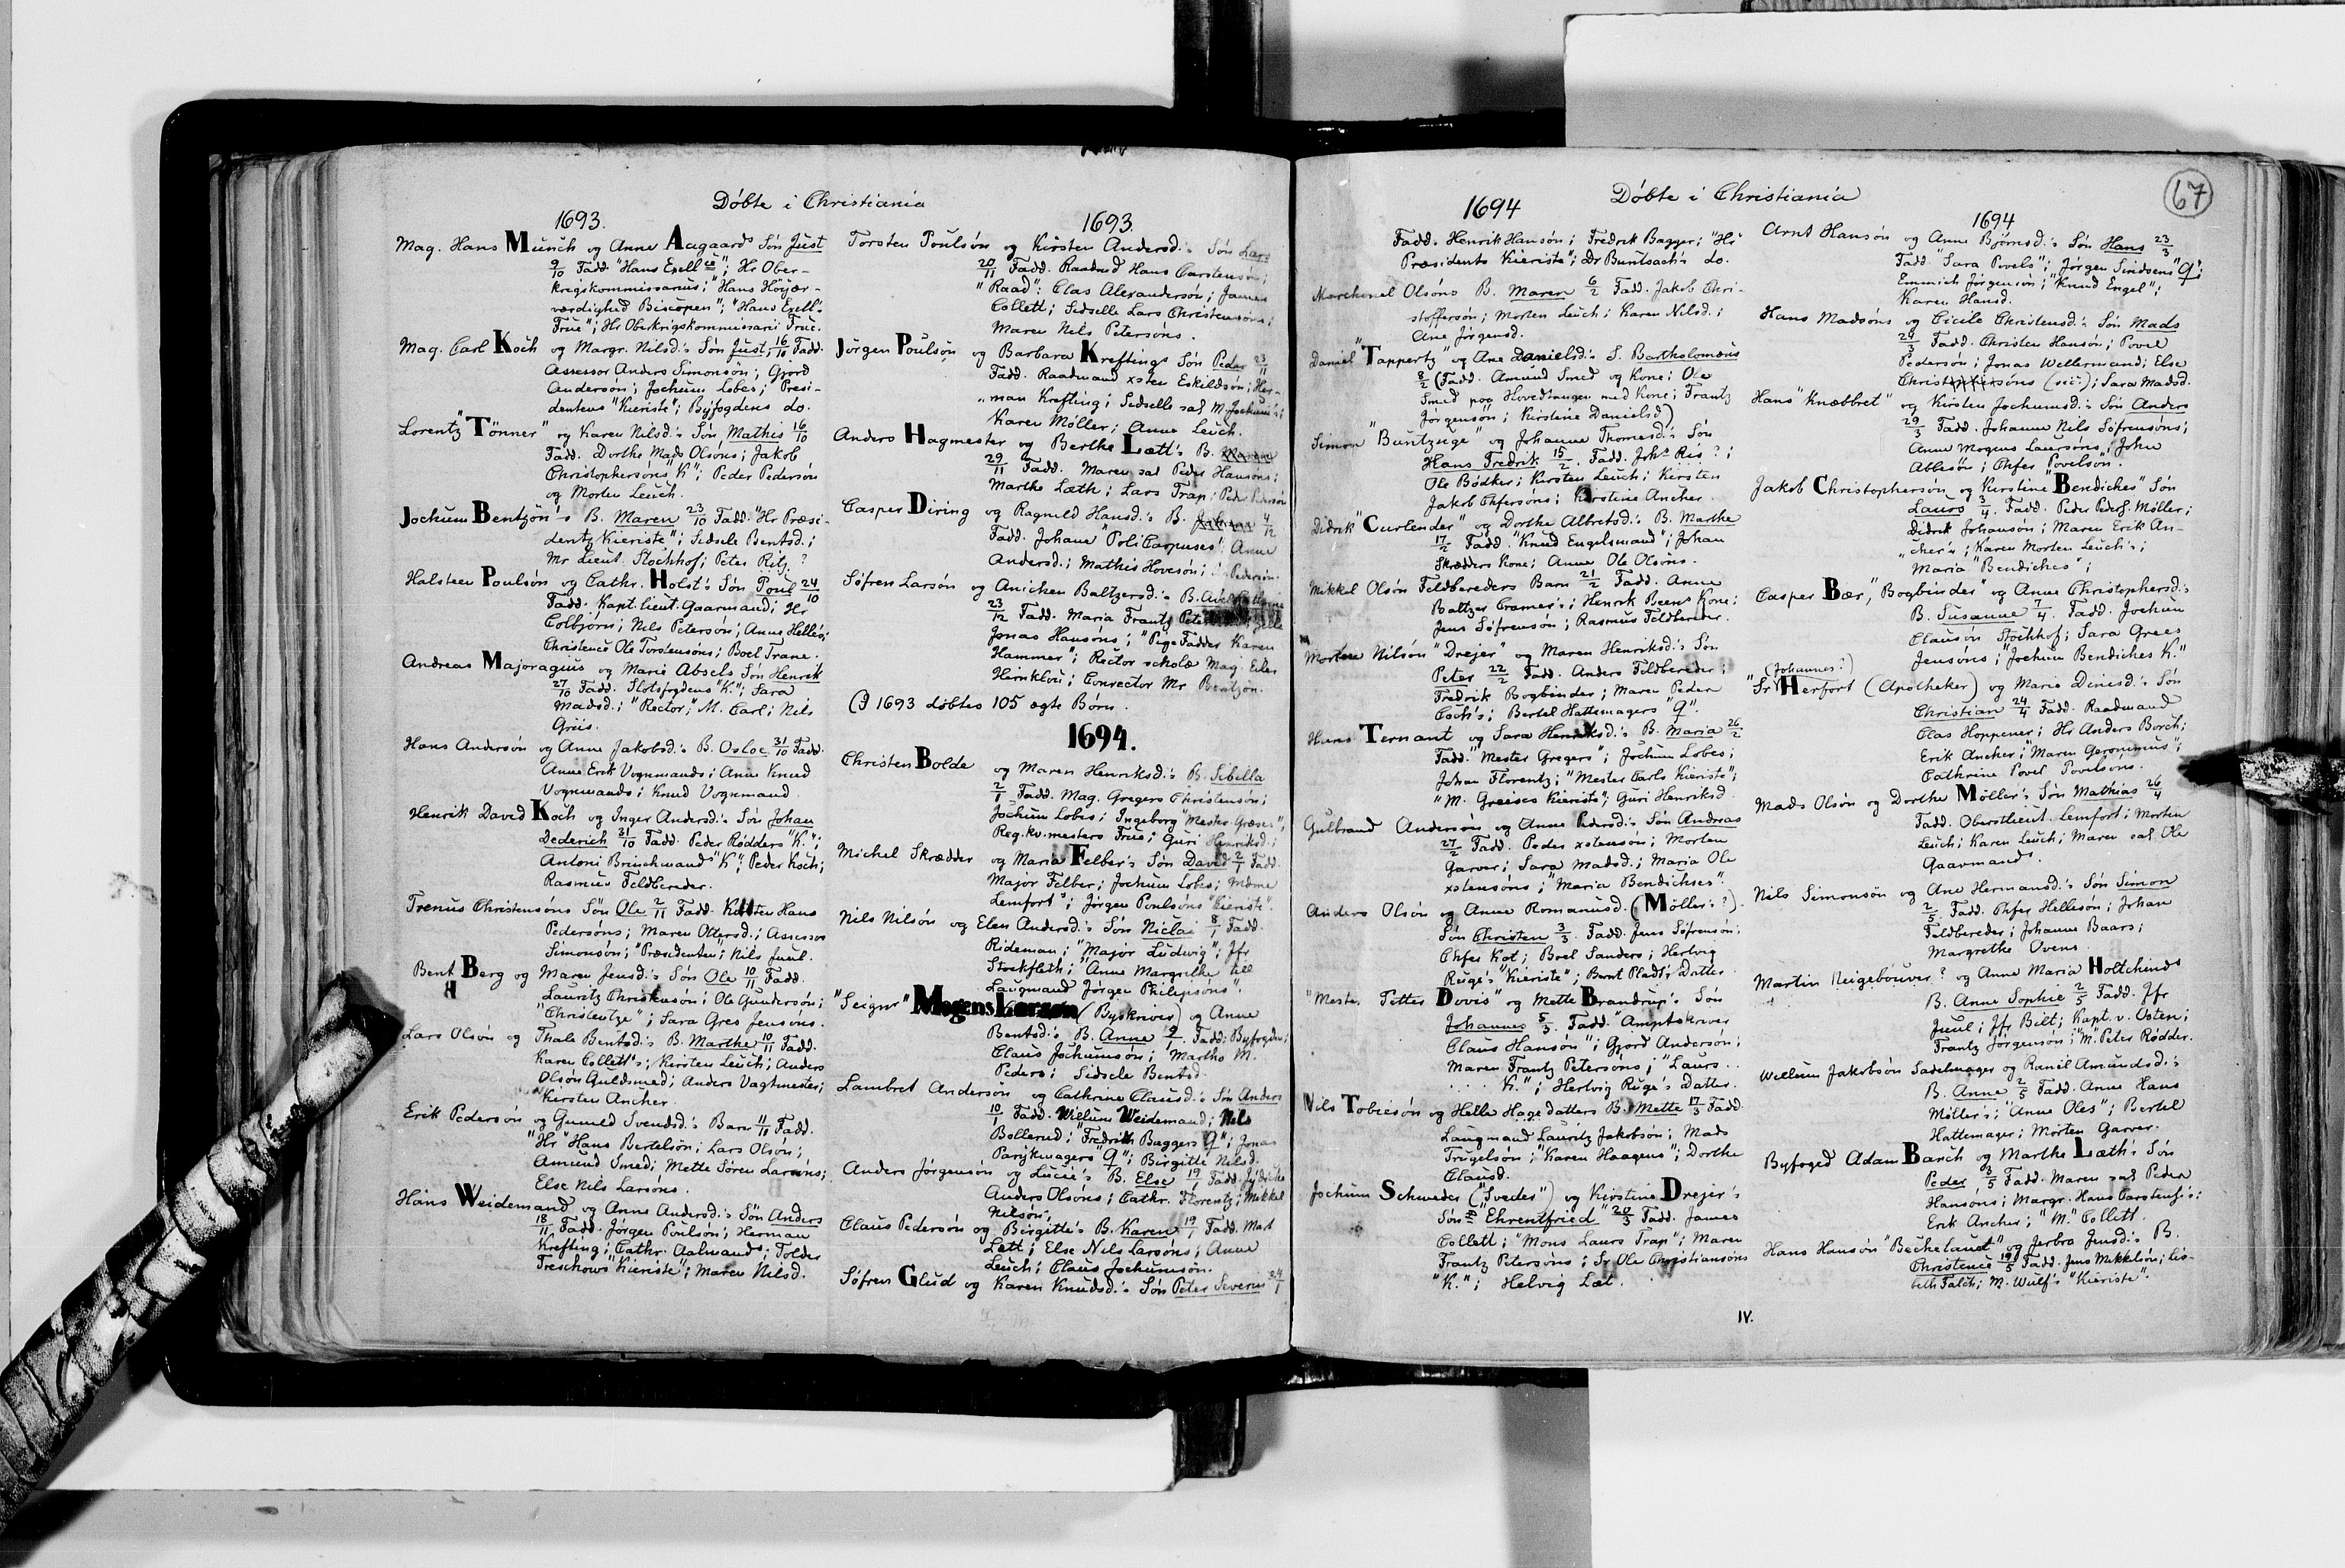 Döbte i Christiania
1693.
Mag. Hans Munch og Anne Aagaards Sön Just
9/10 Fadd "Hans Exell ce"; Hr Ober-
krigskommissarius; "Hans Höjær-
værdighed Biscopen"; "Hans Exell's
Frue"; Hr Oberkrigskommissarii Frue.
Mag. Carl Koch og Margr. Nilsd.'s Sön Just, 16/10 Fadd.
Assessor Anders Simonsön; Gjord
Andersön; Jochum Lobes; Presi-
dentens "Kieriste"; Byfogdens do.
Lorentz "Tönner" og Karen Nilsd.'s Sön Mathis 16/10
Fadd. Dorthe Mads Olsöns; Jakob
Christophersöns "K"; Peder Pedersön
og Morten Leuch.
Jochum Bentzön's B. Maren 23/10 Fadd. "Hr Præsi-
dentz Kieriste"; Sidsele Bentsd.;
Mr Lieut. Stockhof; Peter Ritz. ?
Halsteen Poulsön og Cathr. Holst's Sön Poul 24/10
Fadd. Kapt. lieut. Gaarmand; Hr
Colbjörn; Nils Petersön; Anne Helles;
Christence Ole Torstensöns; Boel Trane.
Andreas Majoragius og Marie Absels Sön Henrik
27/10 Fadd. Slotsfogdens "K."; Sara
Madsd.; "Rector"; M. Carl; Nils
Griis.
Hans Andersön og Anne Jakobsd.'s B. Osloe 31/10 Fadd.
Anne Erik Vognmands; Anne Knud
Vognmands; Knud Vognmand.
Henrik David Koch og Inger Andersd.'s Sön Johan
Dederich 31/10 Fadd. Peder Rödders "K.";
Antoni Brinchmands "K"; Peder Koch;
Rasmus Feldbereder.
Trenus Christensöns Sön Ole 2/11 Fadd. Karsten Hans
Pedersöns; Maren Ottersd.; Assessor
Simonsön; "Præsidenten"; Nils Juul.
Bent Berg og Maren Jensd.'s Sön Ole 10/11 Fadd.
Lauritz Christensön; Ole Gundersön;
"Christentze"; Sara Gres Jensöns.
Lars Olsön og Thale Bentsd.'s B. Marthe 10/11 Fadd.
Karen Collett's; Kirsten Leuch; Anders
Olsön Guldsmed; Anders Vagtmester;
Kirsten Ancher.
Erik Pedersön og Gunnild Svendsd.'s Barn 11/11 Fadd.
"Hr" Hans Bertelsön; Lars Olsön;
Amund Smed; Mette Sören Larsöns;
Else Nils Larsöns.
Hans Weidemand og Anne Andersd.'s Sön Anders
18/11 Fadd. Jörgen Poulsön; Herman
Krefting; Cathr. Aalmands; Tolder
Treschows "Kieriste"; Maren Nilsd.
1693.
Torsten Poulsön og Kirsten Andersd.'s Sön Lars
20/11 Fadd. Raadmd Hans Carstensön;
"Raad": Clas Alexandersön; James
Collett; Sidselle Lars Christensöns;
Maren Nils Petersöns.
Jörgen Poulsön og Barbara Kreftings Sön Peder 23/11
Fadd. Raadmand xsten Eskildsön; Her-
"man Krefting; Sidselle sal M. Jochum's;
Karen Möller; Anne Leuch.
Anders Hagmester og Berthe Lætt's B. Maren
29/11 Fadd. Maren sal Peder Hansöns;
Marthe Læth; Lars Trap; Peder Pedersön
Casper Diring og Ragnild Hansd.'s B. Johan 4/12
Fadd. Johane PoliCarpuses; Anne
Andersd.; Mathis Hovesön; Pedersön.
Söfren Larsön og Anichen Baltzersd.'s B.
23/12 Fadd. Maria Frantz
Jonas Hansöns; "Pige Fadder Karen
Hammer"; Rector scholæ Mag. Elias
Hirnklou; Conrector Mr Bentzön.
(I 1693 döbtes 105 ægte Börn.
1694.
Christen Bolde og Maren Henriksd.'s B. Sibilla
2/1 Fadd. Mag. Gregers Christensön;
Jochum Lobes; Ingeborg "Mester Græses";
Reg. kv. mesters Frue; Guri Henriksd.;
Michel Skrædder og Maria Felber's Sön David 2/1 Fadd.
Major Felber; Jochum Lobes; Mdme
Lemfort; Jörgen Poulsöns "Kieriste".
Nils Nilsön og Elen Andersd.'s Sön Niclai 8/1 Fadd.
Rideman; "Major Ludwig"; Jfr
Stockfleth; "Anne Margrethe till
Laugmand Jörgen Philipsöns".
"Seignr" Mogens Larsön (Byskriver) og Anne
Bentsd.'s B. Anne 9/1 Fadd; Byfogden;
Claus Jochumsön; Marthe M.
Peders; Sidsele Bentsd.
Lambret Andersön og Cathrine Clausd.'s Sön Anders
10/1 Fadd. Willum Weidemand; Nils
Bollerud; "Fredrik Baggers Q"; Jonas
Parÿkmagers "Q"; Birgitte Nilsd.
Anders Jörgensön og Lucie's B. Else 19/1 Fadd.
Anders Olsöns; Cathr. Florentz; Mikkel
Nilsön;
Claus Pedersön og Birgitte's B. Karen 19/1 Fadd. Mad
Lætt; Else Nils Larsöns; Anne
Leuch; Claus Jochumsön.
Söfren Glud og Karen Knudsd.'s Sön Peter Severin 24/1
67
Döbte i Christiania
1694
Fadd. Henrik Hansön; Fredrik Bagger; "Hr
Præsidents Kieriste"; Dr Buntsach's do.
Marchonel Olsöns B. Maren 6/2 Fadd. Jakob Chri-
stoffersön; Morten Leuch; Karen Nilsd.;
Ane Jörgensd.
Daniel "Tappertz" og Ane Danielsd.'s S. Bartholomæus
8/2 (Fadd. Amund Smed og Kone; Ole
Smed paa Hovedtangen med Kone; Frantz
Jörgensön; Kirstine Danielsd)
Simon "Buntzuge" og Johanne Thomesd.'s Sön
Hans Fredrik 15/2. Fadd. Johs Ris ?;
Ole Bödker; Kirsten Leuch; Kirsten
Jakob Chfersöns; Kirstine Ancher.
Didrik "Curlender" og Dorthe Albretsd.'s B. Marthe
17/2 Fadd. "Knud Engelsmand"; Johan
Skrædders Kone; Anne Ole Olsöns.
Mikkel Olsön Feldbereders Barn 21/2 Fadd. Anne
Baltzer Cramer's; Henrik Beens Kone;
Jens Söfrensön; Rasmus Feldbereder.
Morten Nilsön "Drejer" og Maren Henriksd.'s Sön
Peter 22/2 Fadd. Anders Feldbereder;
Fredrik Bogbinder; Maren Peder
Coch's; Bertel Hattemagers "Q".
Hans Ternant og Sara Henriksd.'s B. Maria 26/2
Fadd. "Mester Gregers"; Jochum Lobes;
Johan Florentz; "Mester Carls Kieriste";
"M. Greises Kieriste"; Guri Henriksd.
Gulbrand Andersön og Anne Pedersd.'s Sön Andreas
27/2 Fadd. Peder xstensön; Morten
Garver; Sara Madsd.; Maria Ole
xstensöns; "Maria Bendichses".
Anders Olsön og Anne Romanusd. (Möller's ?).
Sön Christen 3/3. Fadd. Jens Söfrensön;
Chfer Kot; Boel Sanders; Hertvig
Ruge's "Kieriste"; Bernt Pladt's Datter.
"Mester Petter Dovis" og Mette Brandrup's Sön
Johannes 5/3. Fadd. "Amptskriver
Claus Hansön"; Gjord Andersön;
Maren Frantz Petersöns; "Laurs...
... K."; Hertvig Ruge's Datter.
Nils Tobiesön og Helle Hagedatters B. Mette 17/3 Fadd.
Laugmand Lauritz Jakobsön; Mads
Trugelsön; "Karen Haagens"; Dorthe
Clausd.
Jochum Schweder ("Sveder") og Kirstine Drejer's
Sön "Ehrentfried" 20/3 Fadd. James
Collett; "Mons Laurs Trap"; Maren
Frantz Petersöns; Sr Ole Christiansöns
"K."; Helvig Læt.
1694
Arnt Hansön og Anne Björnsd.'s Sön Hans 23/3
Fadd. "Sara Povels"; Jörgen Sindsens "Q";
Emmich Jörgensön; "Knud Engel";
Karen Hansd.
Hans Madsöns og Cicile Christensd.'s Sön Mads
24/3 Fadd. Christen Hansön; Povel
Pedersön; Jonas Wellermand; Else
Christensöns (sic!); Sara Madsd.
Hans "Knæbbret" og Kirsten Jochumsd.'s Sön Anders
29/3 Fadd. Johanne Nils Söfrensöns;
Anne Mogens Laursöns; John
Abbesön; Chfer Povelsön.
Jakob Christophersön og Kirstine "Bendiches" Sön
Laurs 3/4. Fadd. Peder Peders. Möller;
Didrik Johansön; Maren Erik An-
"cher's; Karen Morten Leuch's;
Maria "Bendiches";
Casper Bær, "Bogbinder" og Anne Christophersd.'s
B. Susanne 7/4. Fadd. Jochum
Clausön Stockhof; Sara Grees
Jensöns; "Jochum Bendiches K."
(Johannes?)
"Sr Herfort (Apotheker) og Marie Dinesd.'s Sön
Christian 24/4 Fadd. Raadmand
Clas Hoppener; Hr Anders Borch;
Erik Ancher; "Maren Geronimus";
Cathrine Povel Povelsöns.
Mads Olsön og Dorthe Möller's Sön Mathias 26/4
Fadd. Oberstlieut. Lemfort; Morten
Leuch; Karen Leuch; Maren sal Ole
Gaarmands.
Nils Simonsön og Ane Hermansd.'s Sön Simon
2/5. Fadd. Chfer Hellesön; Johan
Feldbereder; Johanne Baars;
Margrethe Ovens.
Martin Neigebouver? og Anne Maria Holtchinds
B. Anne Sophie 2/5 Fadd. Jfr
Juul; Jfr Bilt; Kapt. v. Osten;
Frantz Jörgensön; "M." Peter Rödder.
Wellum Jakobsön Sadelmager og Ranil Amundsd.'s
B. Anne 2/5 Fadd. Anne Hans
Möller's; "Anne Oles"; Bertel
Hattemager; Morten Garver.
Byfoged Adam Barch og Marthe Læth's Sön
Peder 3/5 Fadd. Maren sal Peder
Hansöns; Margr. Hans Carstens.'s;
Erik Ancher; "M." Collett.
Hans Hansön "Bechelaud" og Jerbro Jensd.'s B.
Christence 19/5 Fadd. Jens Mikkelsön; Lis-
beth Falch; M. Wulf's "Kieriste".
IV.